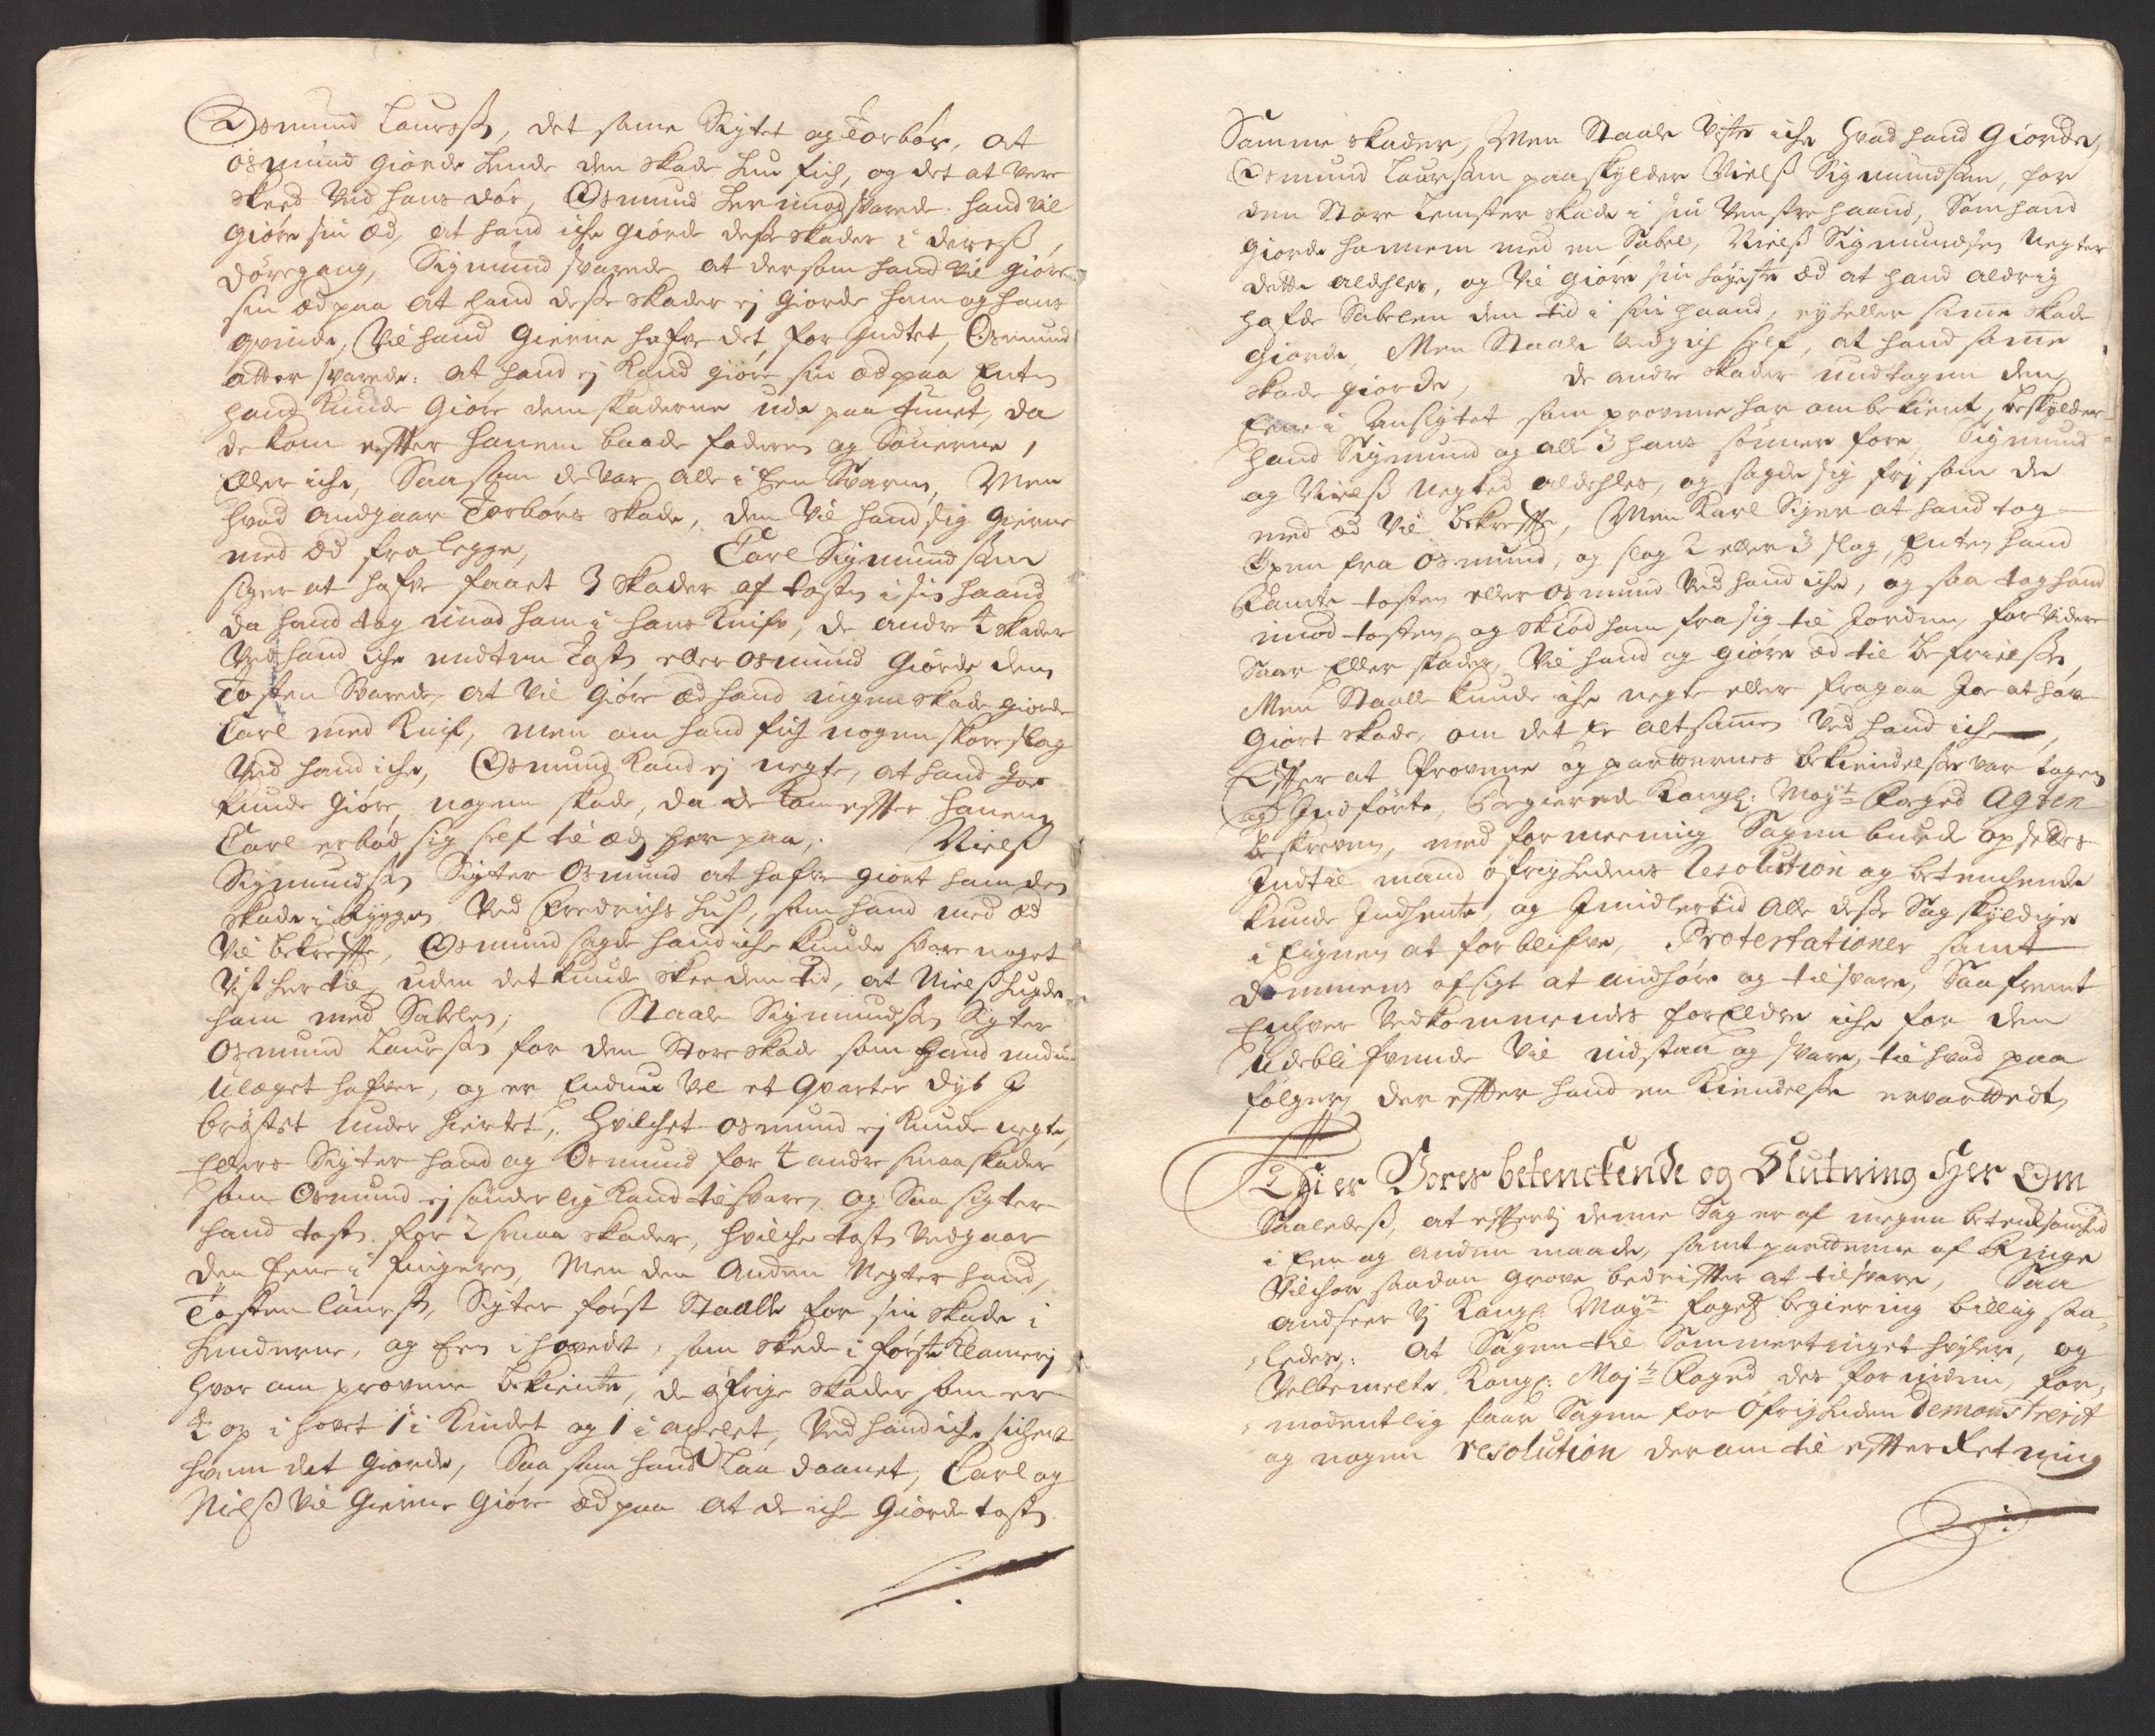 Osmund Laurssøn, det same Sigtet og Torbor, at
osmund giorde hinde den skade hun fich, og det at vere
skeed ved hans dør, Osmund her imod svarede: hand vil
giøre sin æd, at hand iche giorde deße skader i dereß
døregang, Sigmund svarede at dersom hand vil giøre
sin æd paa at hand deße skader ej giorde ham og hans
qvinde, vil hand gierne hafve det for Indtet, Osmund
atter svarede: at hand ej kand giøre sin æd paa Enten
hand kunde giøre dem skaderne ude paa tunet, da
de kom efter hanem baade faderen og Sønerne,
Eller iche, Saasom de var alle i Een Svarm, Men
hvad andgaar Torbors skade, den vil hand sig gierne
med æd fralegge, Carl Sigmundsøn
siger at hafve faaet 3 skader af tosten i sin haand
da hand tog imod ham i hans knif, de andre 4 skader
Ved hand iche endten Tosten eller osmund giorde dem
Tosten Svarede, at vil giøre æd hand ingen skade giorde
Carl med knif, men om hand fich nogen skore slag
Ved hand iche, Osmund kand ej negte, at hand jo
kunde giøre nogen skade, da de kom efter hanem
Carl erbød sig self til æd her paa, Nielß
Sigmundsøn Sigter Osmund at hafve giort ham den
skade i Ryggen ved Fredrichs huß, som hand med æd
vil bekrefte, Osmund sagde hand iche kunde svare noget
vist her til, uden det kunde skee den tid, at Nielß hugde
ham med Sabelen, Staale Sigmundsøn Sigter
Osmund Laursøn for den Store skade som hand endnu
ulæget hafver, og er Endnu vel et qvarter dyb I
brøstet under hiertet, hvilchet osmund ej kunde negte,
Ellers Sigter hand og Osmund for 4 andre smaa skader
som Osmund ej sønderlig kand tilsvare, og Saa sigter
hand tosten for 2 smaa skader, hvilche tosten vedgaar
den Eene i fingeren, Men den Anden Negter hand,
Tosten laursøn, Sigter først Staalle for sin skade i
henderne, og Een i hovedet, som skede i første klameri
hvor om provene bekiente, de øfrige skader som er
4 op i hovet 1 i kindet og 1 i axelet, Ved hand iche sichert
hvem det giorde, Saasom hand laa daanet, Carl og
Nielß vil gierne giøre æd paa at de iche giorde tosten
Samme skader, Men Staale viste iche hvad hand giorde,
Osmund Laursøn paaskylder Nielß Sigmundsøn, for
den Store lemster skade i sin venstre haand, Som hand
giorde hannem med en Sabel, Nielß Sigmundsøn Negter
dette aldeles, og vil giøre sin høyeste æd at hand aldrig
hafde Sabelen den tid i sin haand, ey heller samme skade
giorde, Men Staale vedgich self, at hand samme
skade giorde, de andre skader undtagen den
Eene i Ansigtet som provene har om bekient, beskylder
hand Sigmund og alle 3 hans sønner fore, Sigmund
og Nielß Negted aldeles, og sagde sig frj som de
med æd vil bekrefte, Men Karl siger at hand tog
Øxen fra osmund, og slog 2 eller 3 slag, Enten hand
Ramte tosten eller osmund ved hand iche, og saa tog hand
imod tosten, og skiød ham fra sig til Jorden, for videre
Saar Eller skader, vil hand og giøre æd til befrielse,
Men Staalle kunde iche negte eller fragaa Jo at have
giort skade, om det er altsammen ved hand iche,
Efter at Provene og partternes bekiendelser var tagen
og Indførte, begierede Kongl: Mayts Foged Agten
beskreven, med formeening Sagen burde opsettes
Indtil mand øfrighedens Resolution og betenchende
kunde Indhente, og Imidlertid Alle deße Sagskyldige
i Eignen at forblifve, Protestationer samt
dommens afsigt at andhøre og tilsvare, Saafremt
Enhver vedkommendes forEldre iche for den
udeblifvende vil indstaa og svare til hvad paa
følger der efter hand en kiendelse ervarttedt,
Thi er Vores betenckende og Slutning Her Om
Saaledeß, at efterdj denne Sag er af megen betenksomhed
i Een og anden maade, samt partterne af Ringe
Vilchor saadan grove bedrifter at tilsvare, Saa
andseer Vj Kongl: Mayts fogets begiering billig saa,
ledes: at Sagen til Sommertinget hviler, og
Velbemelte Kongl: Mayts Foged, des forinden, for,
modentlig faar Sagen for Øfrigheden demonstrerit
og nogen resolution derom til efterRetning